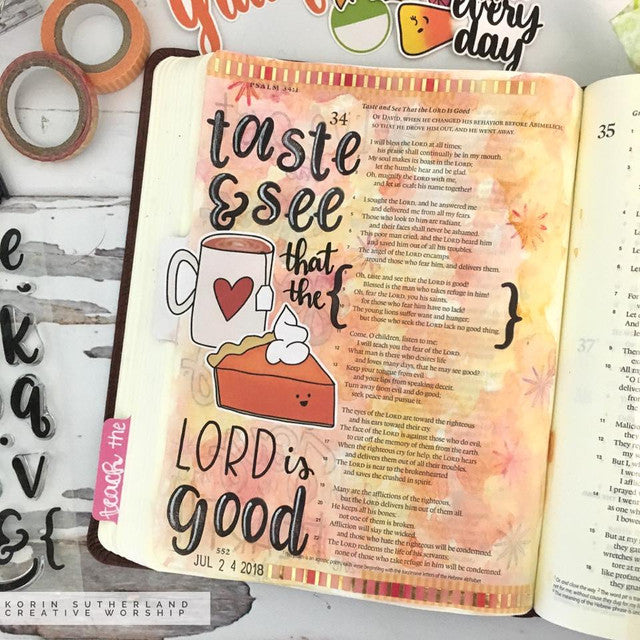 every
day
PSALM 34:1
taste
& see
that
the
LORD is
good
552
JUL 24 2018
teach the
34
Taste and See That the LORD Is Good
OF DAVID, WHEN HE CHANGED HIS BEHAVIOR BEFORE ABIMELECH,
SO THAT HE DROVE HIM OUT, AND HE WENT AWAY.
I will bless the LORD at all times;
his praise shall continually be in my mouth.
My soul makes its boast in the LORD;
let the humble hear and be glad.
Oh, magnify the LORD with me,
and let us exalt his name together!
4 I sought the LORD, and he answered me
and delivered me from all my fears.
5 Those who look to him are radiant,
and their faces shall never be ashamed.
This poor man cried, and the LORD heard him
and saved him out of all his troubles.
7 The angel of the LORD encamps
around those who fear him, and delivers them.
Oh, taste and see that the LORD is good!
Blessed is the man who takes refuge in him!
Oh, fear the LORD, you his saints,
for those who fear him have no lack!
The young lions suffer want and hunger;
but those who seek the LORD lack no good thing.
Come, O children, listen to me;
I will teach you the fear of the LORD.
12 What man is there who desires life
and loves many days, that he may see good?
13 Keep your tongue from evil
and your lips from speaking deceit.
14 Turn away from evil and do good;
seek peace and pursue it.
15 The eyes of the LORD are toward the righteous
and his ears toward their cry.
16 The face of the LORD is against those who do evil,
to cut off the memory of them from the earth.
17 When the righteous cry for help, the LORD hears
and delivers them out of all their troubles.
18 The LORD is near to the brokenhearted
and saves the crushed in spirit.
19 Many are the afflictions of the righteous,
but the LORD delivers him out of them all.
20 He keeps all his bones;
not one of them is broken.
21 Affliction will slay the wicked,
and those who hate the righteous will be condemned.
22 The LORD redeems the life of his servants;
none of those who take refuge in him will be condemned.
is an acrostic poem, each verse beginning with the successive letters of the Hebrew alphabet
35
37
e
k
q
v
& {
KORIN SUTHERLAND
CREATIVE WORSHIP